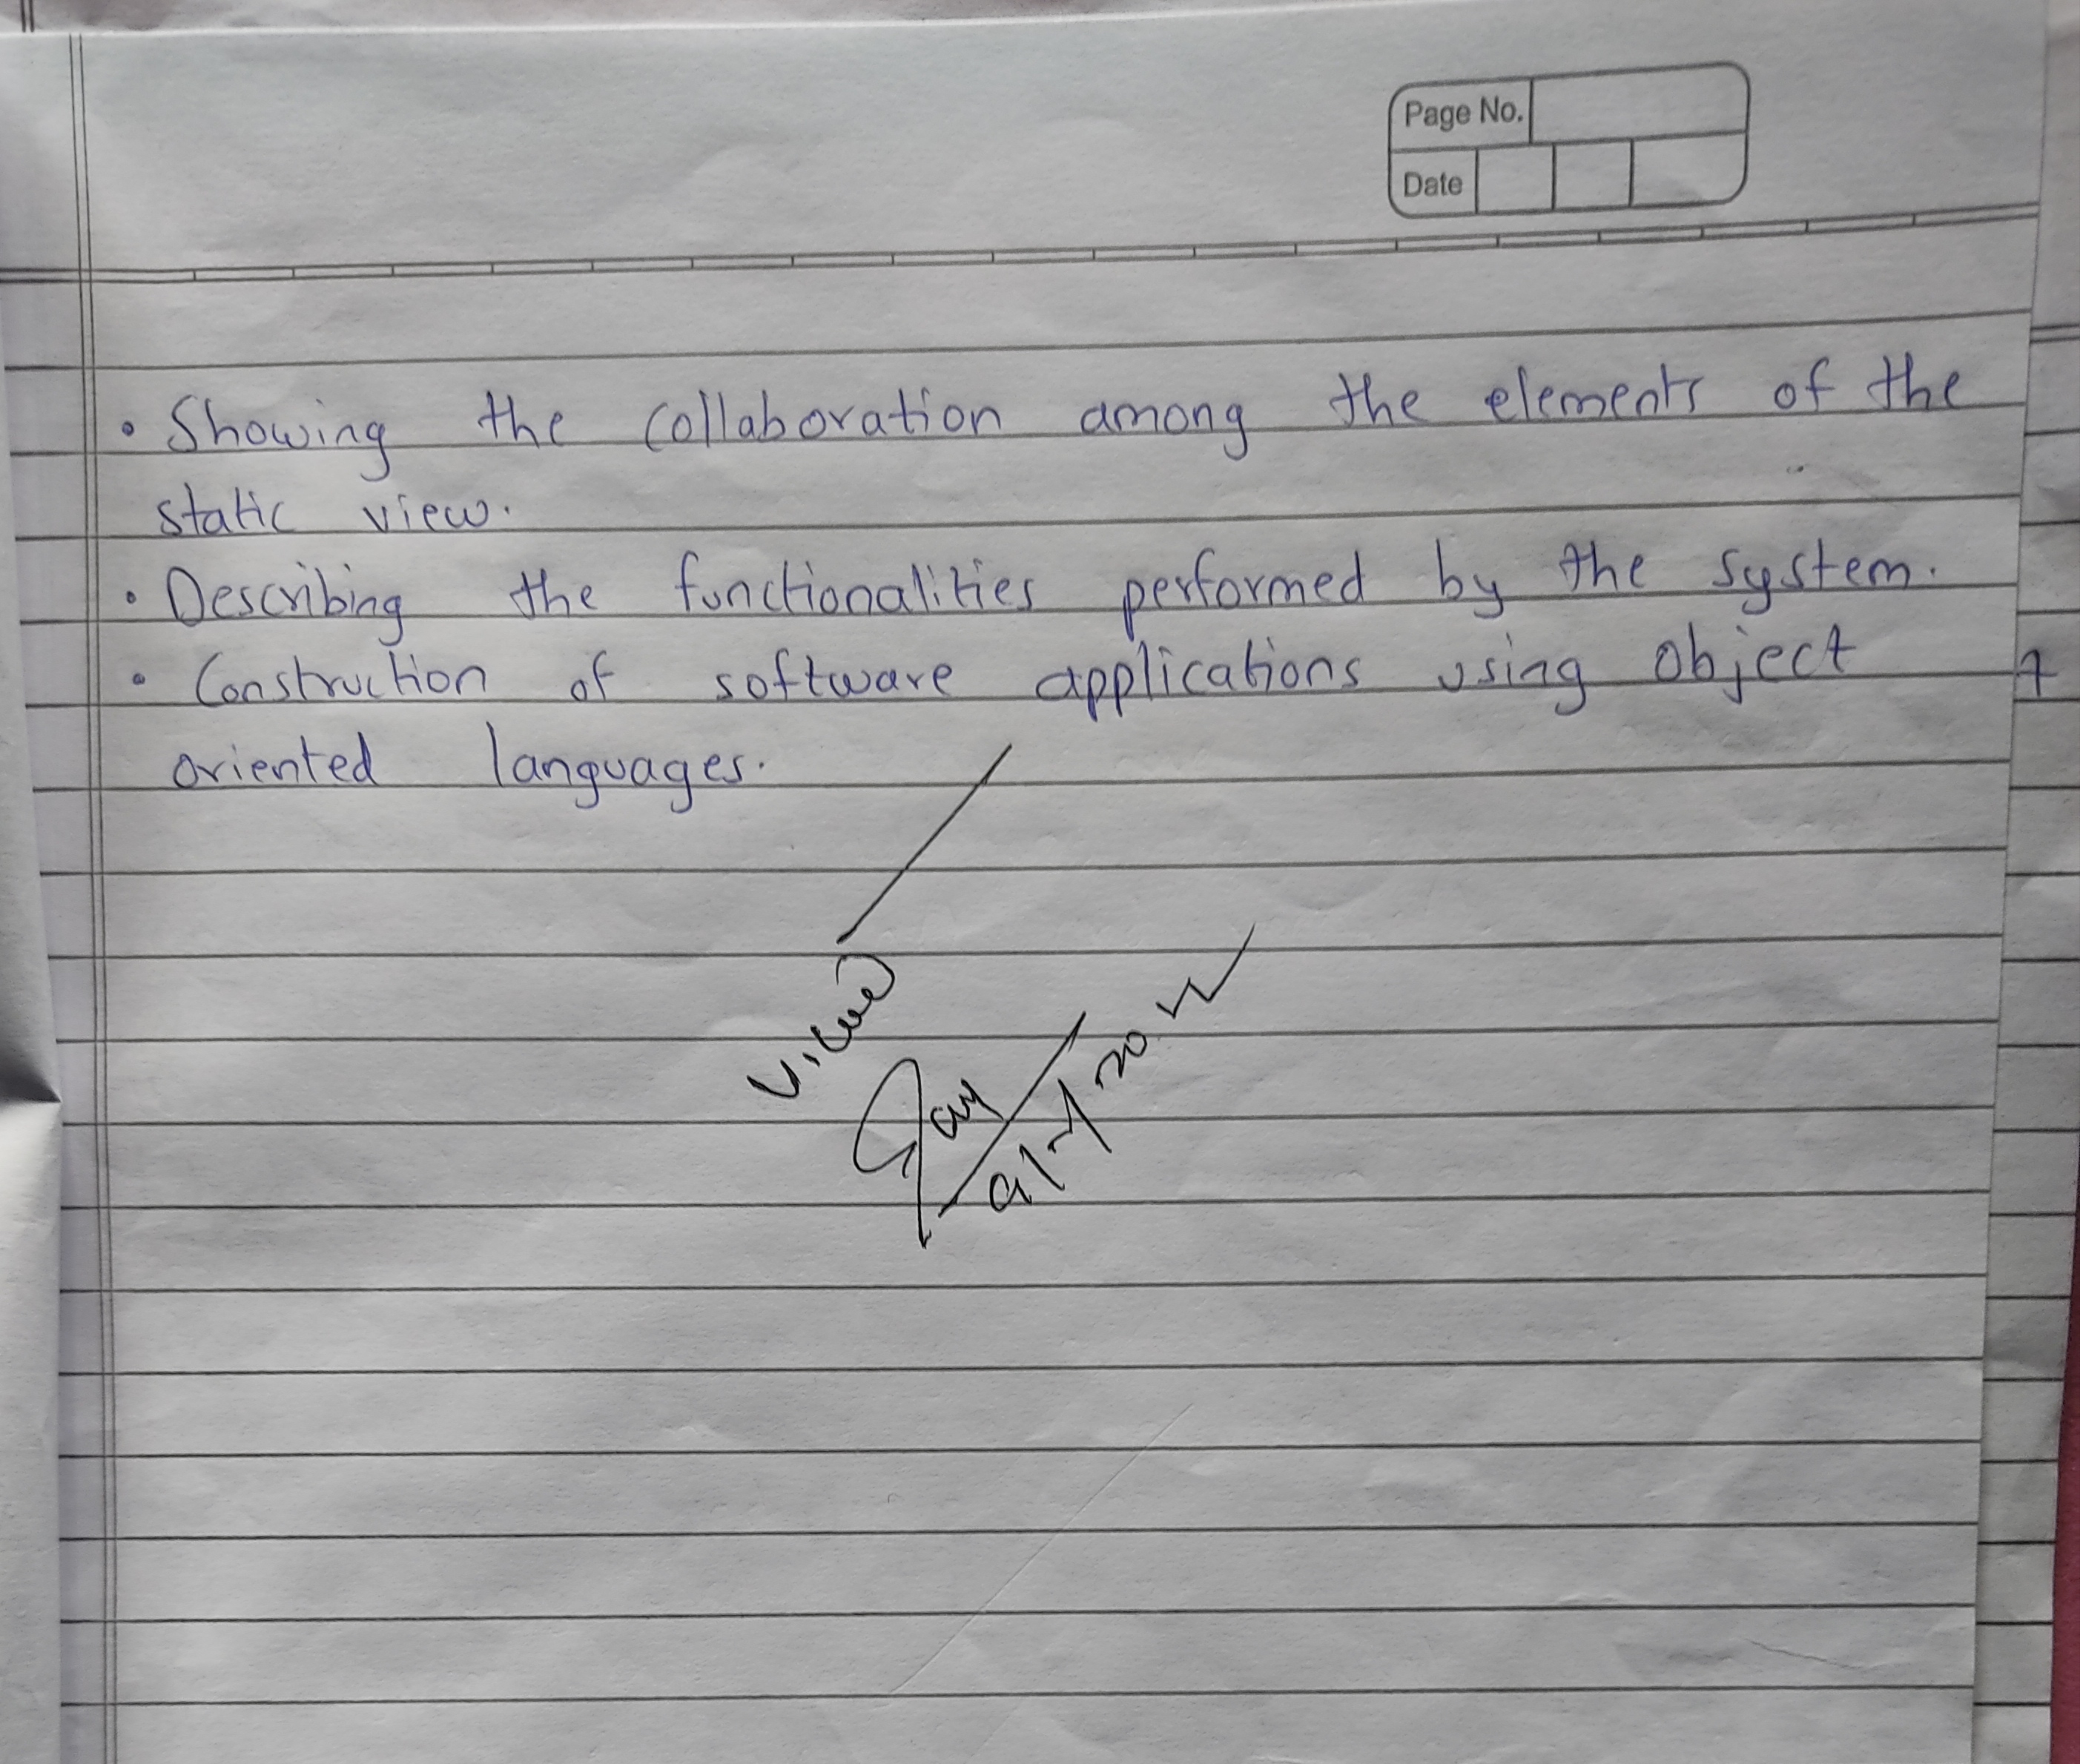 Page No.
Date
• Showing the collaboration among the elements of the
static view.
• Describing the functionalities performed by the system.
• Construction of software applications using object
oriented languages.